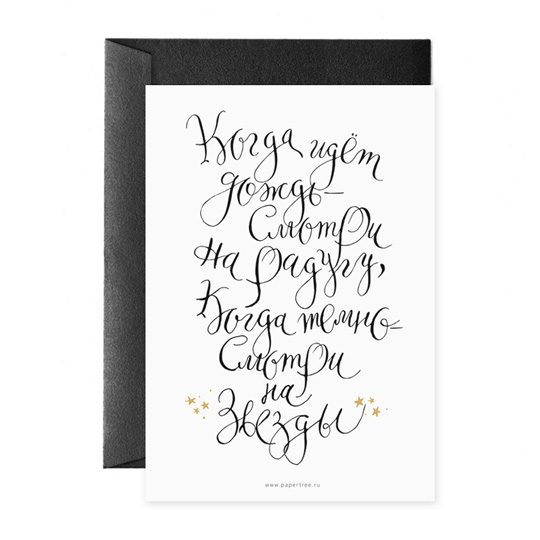 Когда идёт
дождь–
Смотри
на радугу,
Когда темно–
Смотри
на
Звезды
www.papertree.ru